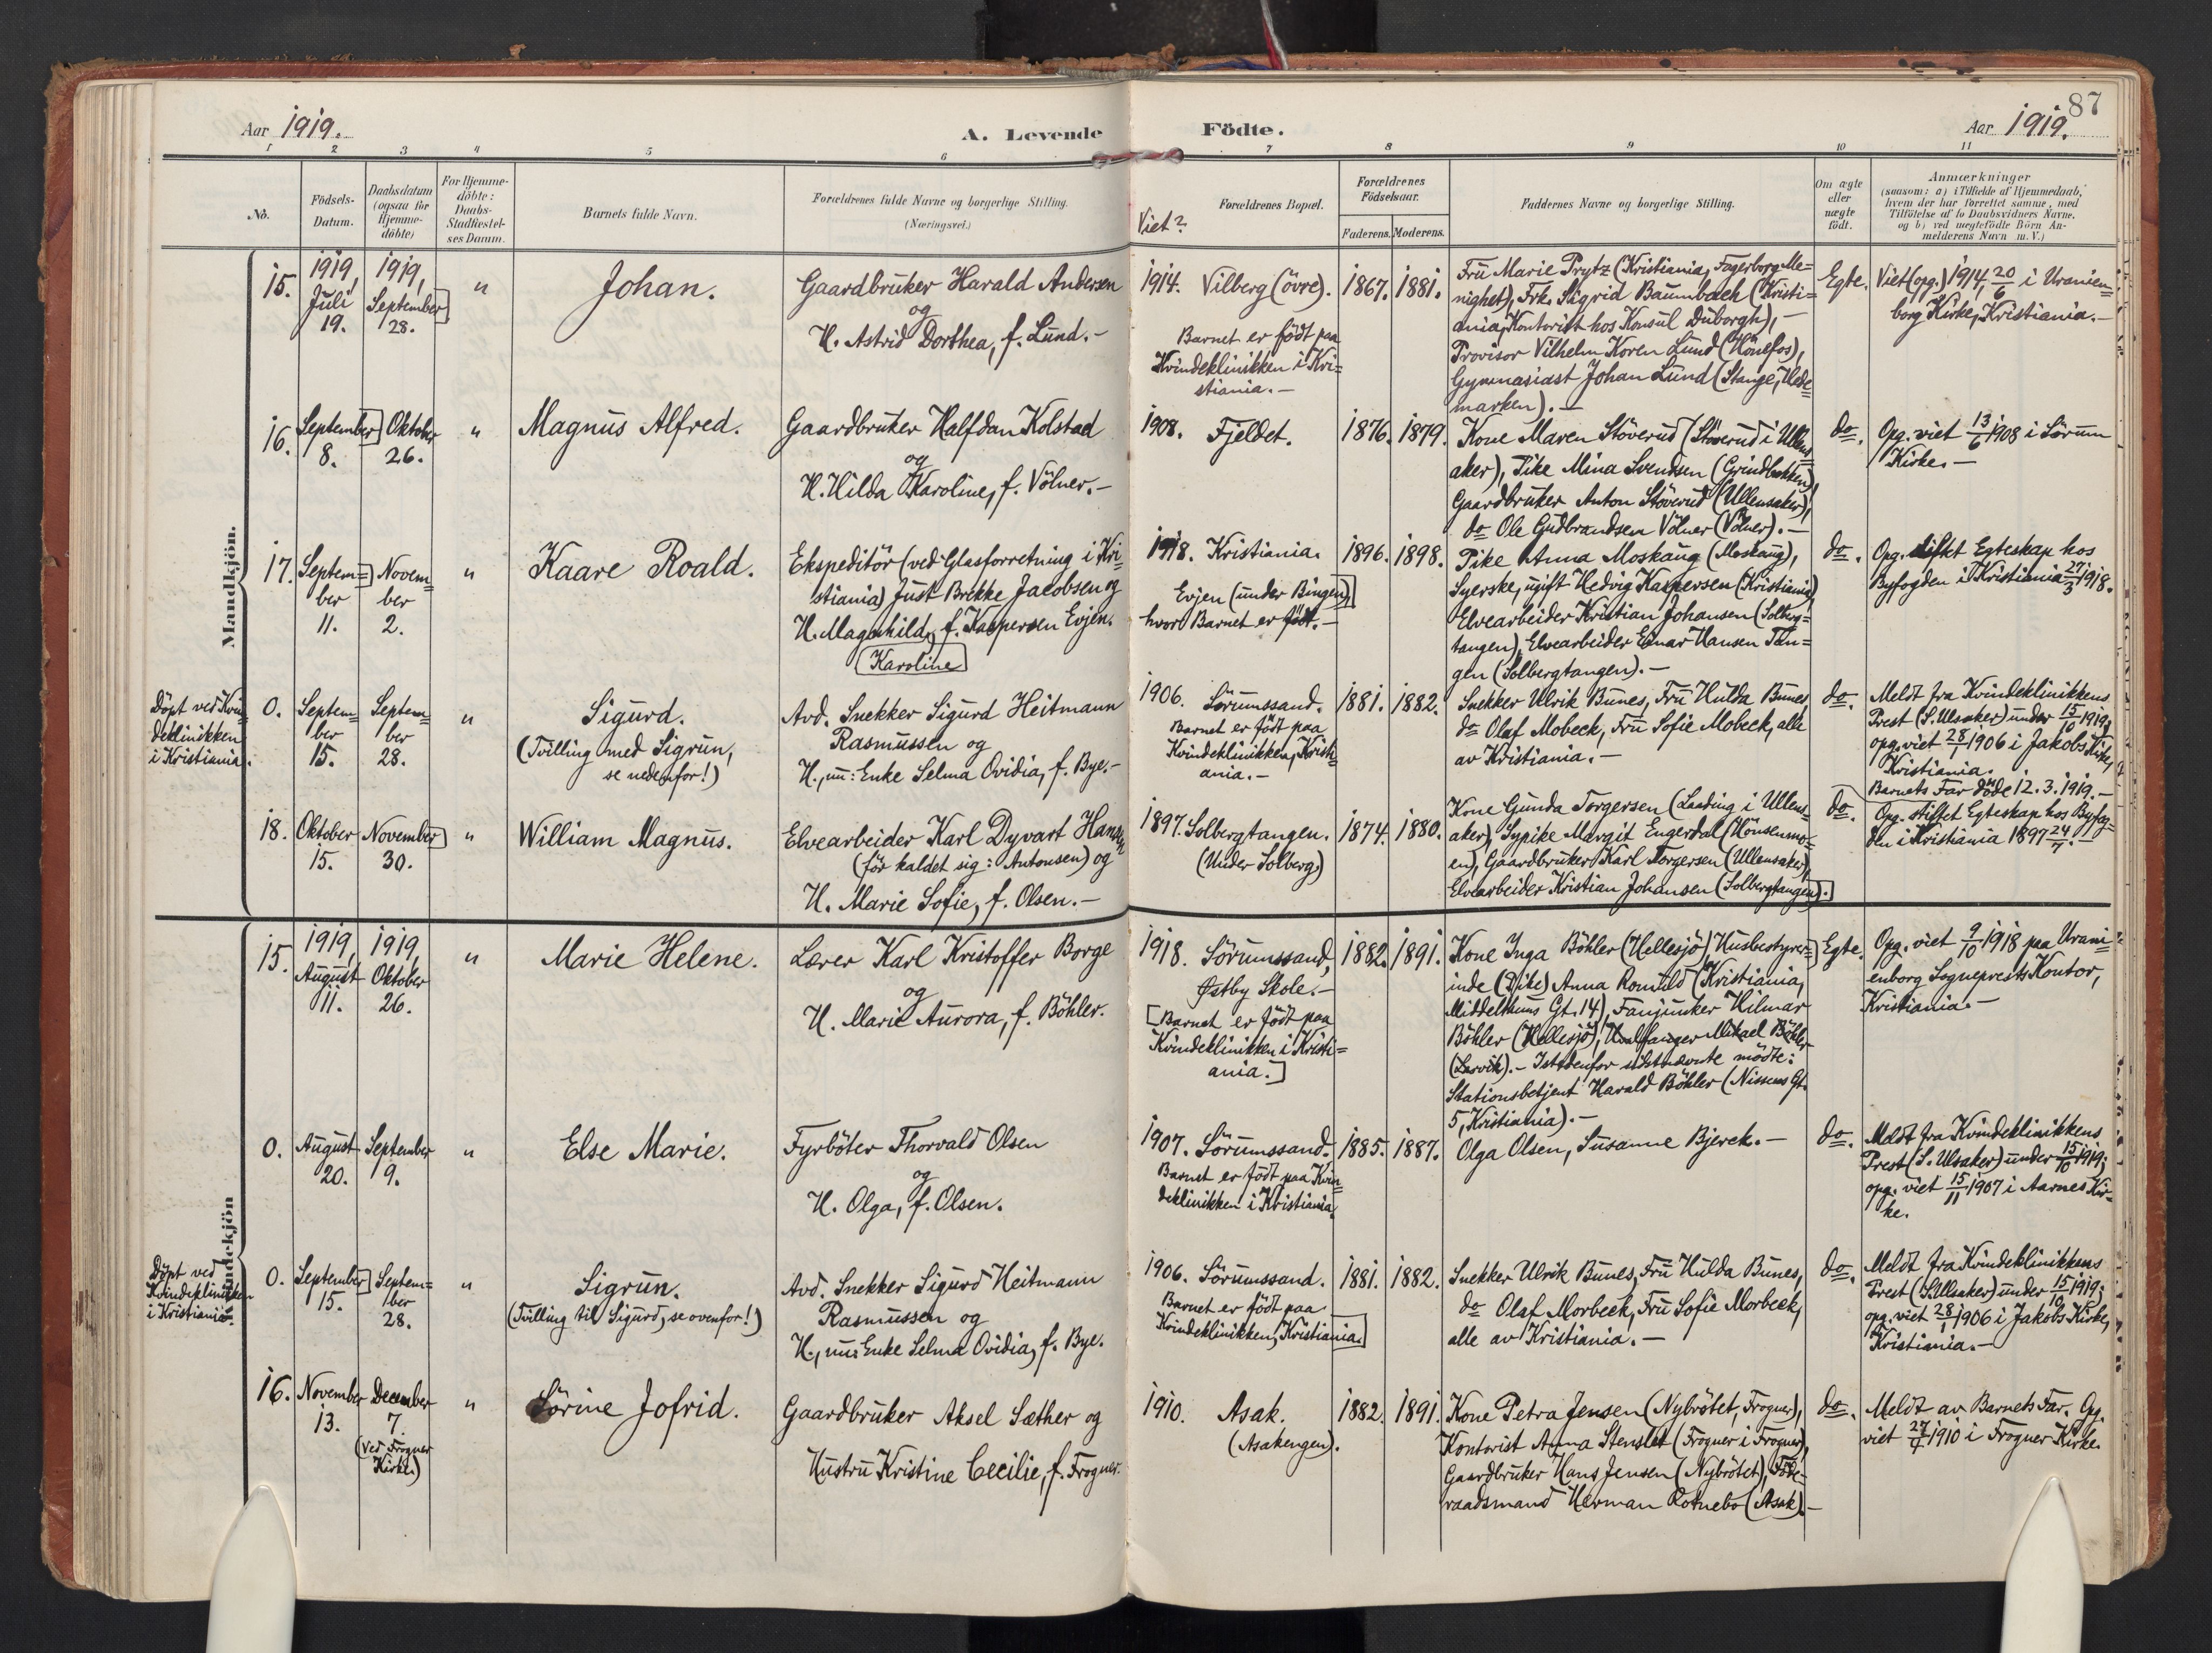 87
Aar 1919.
A. Levende Födte.
Aar 1919.
1 2 3 4 5 6 7 8 9 10 11
No.
Födsels-
Datum.
Daabsdatum
(ogsaa for
Hjemme-
döbte)
For Hjemme-
döbte:
Daabs-
Stadfestel-
ses Datum.
Barnets fulde Navn.
Forældrenes fulde Navne og borgerlige Stilling.
(Næringsvei.)
Viet?
Forældrenes Bopæl.
Forældrenes
Födselsaar.
Faderens. Moderens.
Faddernes Navne og borgerlige Stilling.
Om ægte
eller
uægte
født.
Anmærkninger
(saasom: a) i Tilfælde af Hjemmedaab,
hvem der har forrettet samme, med
Tilföielse af to Daabsvidners Navne,
og b) ved uægtefödte Börn An-
melderens Navn m. V.)
Mandkjön.
15.
1919,
Juli
19.
1919,
September
28.
"
Johan.
Gaardbruker Harald Andersen
og
H. Astrid Dorthea, f. Lund.-
1914.
Vilberg (övre).
Barnet er födt paa
Kvindeklinikken i Kri=
stiania.-
1867. 1881.
Frü Marie Prytz (Kristiania, Fagerborg Me-
nighet), Frk. Sigrid Baumbach (Kristi=
ania, Kontorist hos Konsul Duborgh),-
Provisor Vilhelm Koren Lund (Hönefos),
Gymnasiast Johan Lund (Stange, Hede=
marken).-
Egte.
Viet (opg.) 1914 20/6 i Uranien=
borg Kirke, Kristiania.-
16.
September
8.
Oktober
26.
"
Magnus Alfred.
Gaardbruker Halfdan Kolstad
og
H. Hilda Karoline, f. Völner.-
1908.
Fjeldet.
1876. 1879.
Kone Maren Stöverud (Stöverud i Ullens=
aker), Pike Mina Svendsen (Grindbakken),
Gaardbruker Anton Stöverud (Ullensaker),
do Ole Gudbrandsen Völner (Völner).-
do.
Opg. viet 13/6 1908 i Sörum
Kirke.-
17.
Septem=
ber
11.
Novem=
ber
2.
"
Kaare Roald.
Ekspeditör (ved Glasforretning i Kri=
stiania) Just Brekke Jacobsen og
H. Magnhild, f. Kaspersen Evjen.
Karoline
1918.
Kristiania.
Evjen (under Bingen),
hvor Barnet er födt.-
1896. 1898.
Pike Anna Moskaug (Moskaug),
Syerske, ugift Hedvig Kaspersen (Kristiania),
Elvearbeider Kristian Johansen (Solberg=
tangen), Elvearbeider Einar Hansen Tan=
gen (Solbergtangen).-
do.
Opg. stiftet Egteskap hos
Byfogden i Kristiania 27/3 1918.
Döpt ved Kvin=
deklinikken
i Kristiania.
0.
Septem=
ber
15.
Septem=
ber
28.
"
Sigurd.
(Tvilling med Sigrun,
se nedenfor!)
Avd. Snekker Sigurd Heitmann
Rasmussen og
H., nu: Enke Selma Ovidia, f. Bye.-
1906.
Sörumssand.
Barnet er födt paa
Kvindeklinikken, Kristi=
ania.-
1881. 1882.
Snekker Ulrik Bunes, Frü Hulda Bunes,
do Olaf Mobeck, Frü Sofie Mobeck, alle
av Kristiania.-
do.
Meldt fra Kvindeklinikkens
Prest (S. Ulsaker) under 15/10 1919;
opg. viet 28/1 1906 i Jakobs Kirke,
Kristiania.
Barnets Far döde 12.3.1919.-
18.
Oktober
15.
November
30.
"
William Magnus.
Elvearbeider Karl Dyvart Hansen
(för kaldet sig: Antonsen) og
H. Marie Sofie, f. Olsen.-
1897.
Solbergtangen.
(Under Solberg)
1874. 1880.
Kone Gunda Torgersen (Laading i Ullens=
aker), Sypike Margit Engerdal (Hönsenmo=
en), Gaardbruker Karl Torgersen (Ullensaker),
Elvearbeider Kristian Johansen (Solbergtangen).
do.
Opg. stiftet Egteskap hos Byfog=
den i Kristiania 1897 24/7.-
Kvindekjön
15.
1919,
August
11.
1919,
Oktober
26.
"
Marie Helene.
Lærer Karl Kristoffer Borge
og
H. Marie Aurora, f. Böhler.
1918.
Sörumssand,
Østby Skole.-
[Barnet er födt paa
Kvindeklinikken i Kristi=
ania.]
1882. 1891.
Kone Inga Böhler (Hellesjö) Husbestyrer=
inde (Pike) Anna Romild (Kristiania,
Middelthuns Gt. 14), Fanjunker Hilmar
Böhler (Hellesjö), Hvalfanger Mikael Böhler
(Larvik).- Istedenfor sidstnævnte mödte:
Stationsbetjent Harald Böhler (Nissens Gt.
5, Kristiania).-
Egte.
Opg. viet 9/10 1918 paa Urani=
enborg Sogneprests Kontor,
Kristiania.-
0.
August
20.
September
9.
"
Else Marie.
Fyrböter Thorvald Olsen
og
H. Olga, f. Olsen.
1907.
Sörumssand.
Barnet er födt paa Kvin=
deklinikken i Kristiania.
1885. 1887.
Olga Olsen, Susanne Bjerck.-
do.
Meldt fra Kvindeklinikkens
Prest (S. Ulsaker) under 15/10 1919;
opg. viet 15/11 1907 i Aarnes Kir=
ke.
Döpt ved
Kvindeklinikken
i Kristiania.
0.
September
15.
Septem=
ber
28.
"
Sigrun.
(Tvilling til Sigurd, se ovenfor!)
Avd. Snekker Sigurd Heitmann
Rasmussen og
H., nu: Enke Selma Ovidia, f. Bye.
1906.
Sörumssand.
Barnet er födt paa
Kvindeklinikken, Kristiania.
1881. 1882.
Snekker Ulrik Bunes, Frü Hulda Bunes,
do Olaf Morbeck, Frü Sofie Morbeck,
alle av Kristiania.-
do.
Meldt fra Kvindeklinikkens
Prest (S. Ulsaker) under 15/10 1919;
opg. viet 28/1 1906 i Jakobs Kirke,
Kristiania.-
16.
November
13.
December
7.
(ved Frogner
Kirke.)
"
Sörine Jofrid.
Gaardbruker Aksel Sæther og
Hustru Kristine Cecilie, f. Frogner.
1910.
Asak.
(Asakengen).
1882. 1891.
Kone Petra Jensen (Nybrötet, Frogner),
Kontorist Anna Stenslet (Frogner i Frogner),
Gaardbruker Hans Jensen (Nybrötet), Föde=
raadsmand Herman Rotnebo (Asak).-
do.
Meldt av Barnets Far. Opg.
viet 27/4 1910 i Frogner Kirke.